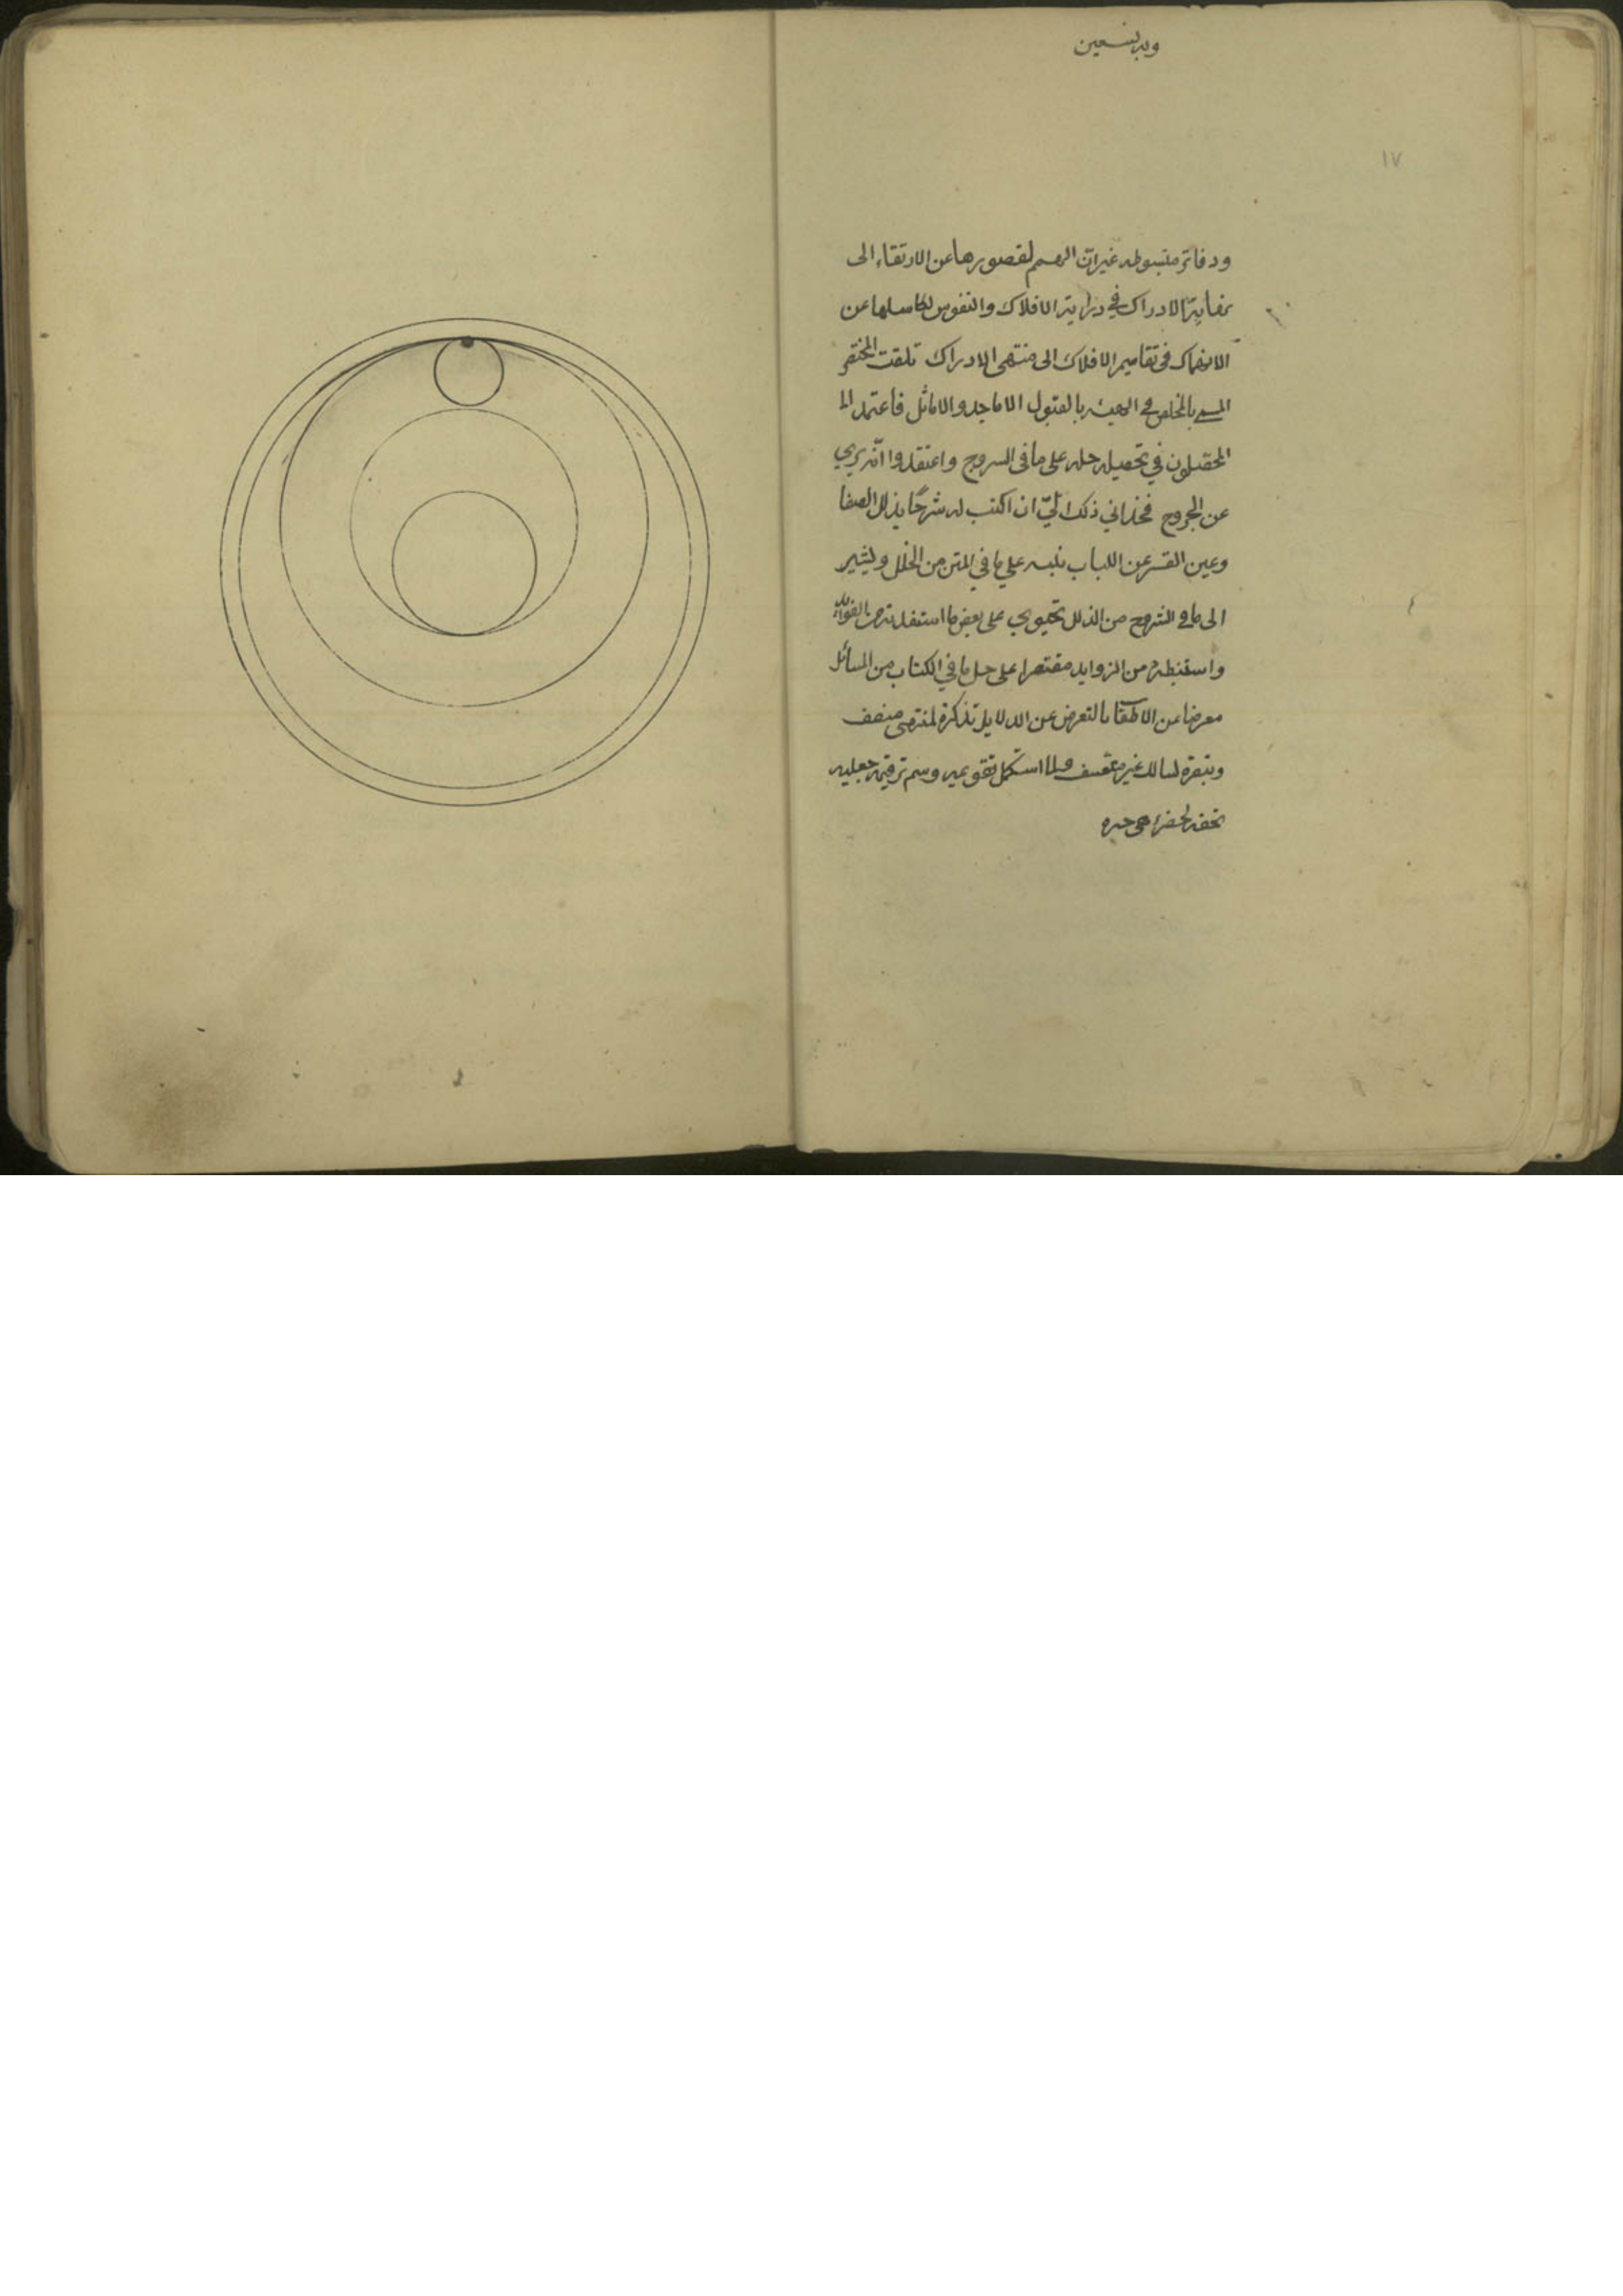 ١٧
ودفاتر مبسوطه غير ان الهمم لقصورها عن الارتقاء الى
غاية الادراك في دراية الافلاك والنفوس لتكاسلها عن
الانهماك في تقاسيم الافلاك الى منتهى الادراك تلقت المختصر
المسمى بالملخص في الهيئة بالقبول الاماجد والاماثل فاعتمد
المحصلون في تحصيله حله على ما في الشروح واعتقدوا انه بري
عن الجروح ذلك ان اكتب له شرحًا يذلل الصعا
القشر عن اللباب ينبه على ما في المتن من الخلل ويشير
الى ما في الشروح من الذلل يحتوي على بعض ما استفدته من الفوائد
واستنبطه من الزوايد مقتصرا على حل ما في الكتاب من المسائل
معرضا عن بالتعرض عن الدلايل تذكرة لمنتهى منصف
وتبصرة لسالك غير متعسف فلما استكمل تقويمه وسم ترقيمه جعلته
تحفة لحضرة